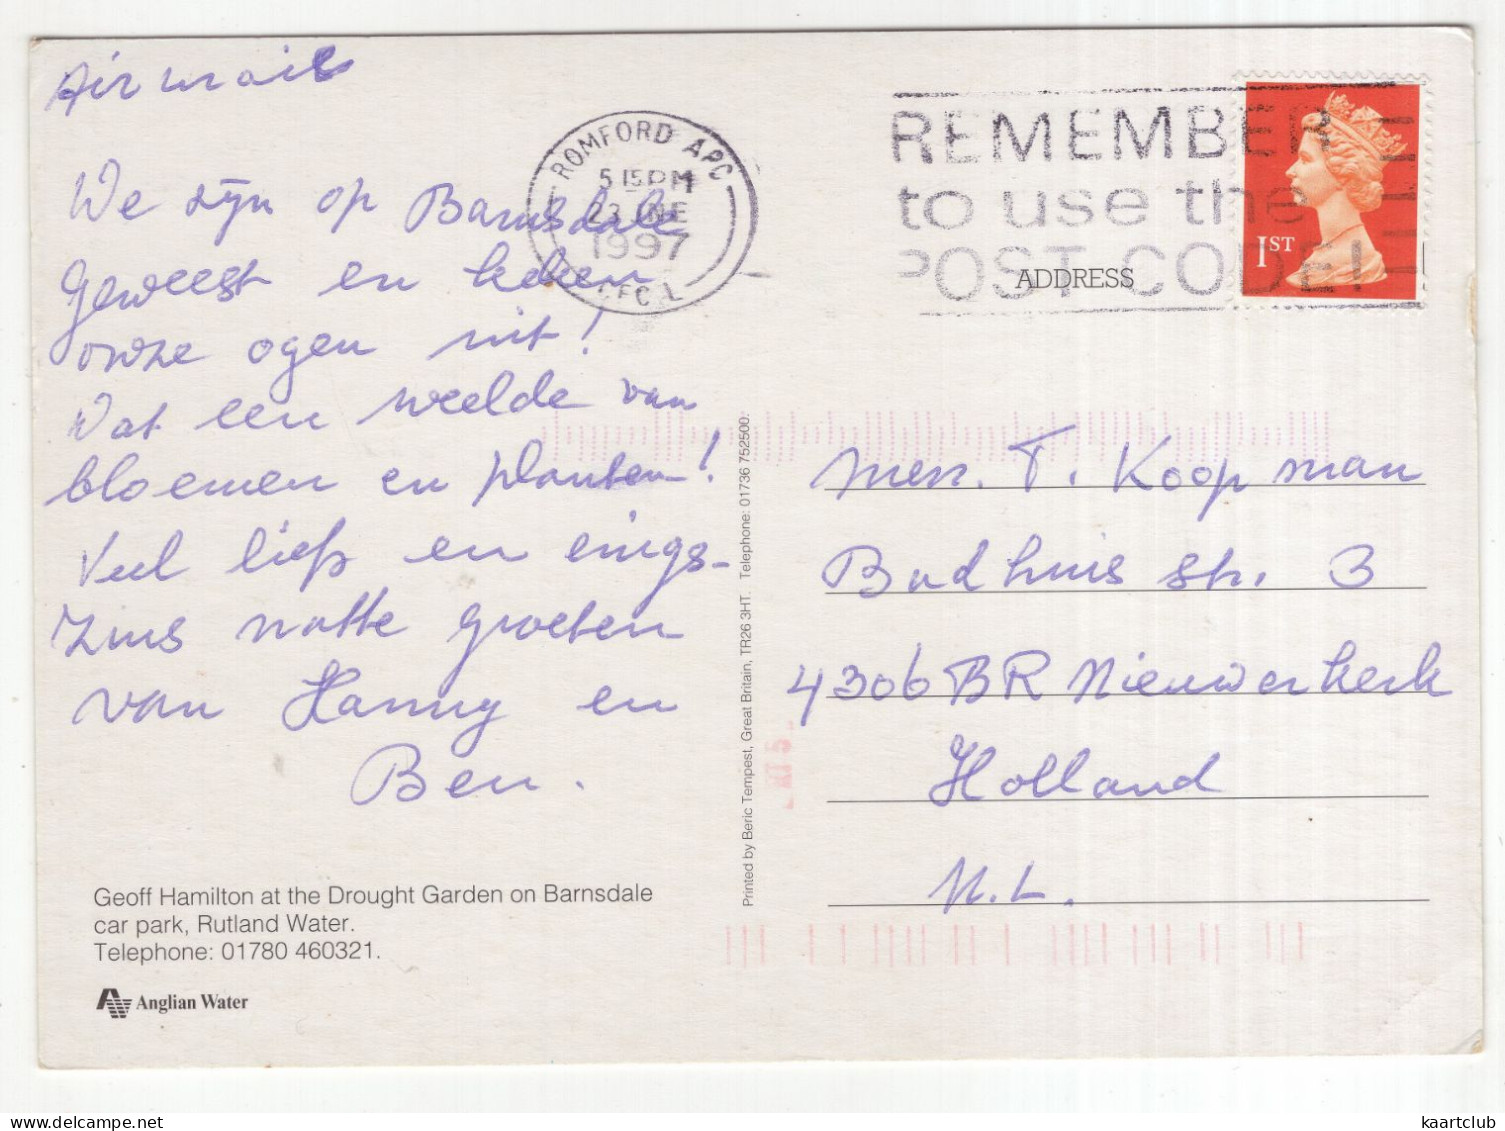 Airmail
We zijn op Barnsdale
geweest en keken
onze ogen uit!
Wat een weelde van
bloemen en planten!
Veel liefs en enigs-
zins natte groeten
van Hanny en
Ben.
Geoff Hamilton at the Drought Garden on Barnsdale
car park, Rutland Water.
Telephone: 01780 460321.
Anglian Water
Printed by Beric Tempest, Great Britain, TR26 3HT. Telephone: 01736 752500.
ROMFORD APC
5 15PM
1997
REMEMBER
to use the
POST CODE!
1ST
ADDRESS
mevr. T. Koopman
Badhuisstr. 3
4306BR Nieuwerkerk
Holland
N.L.
kaartclub